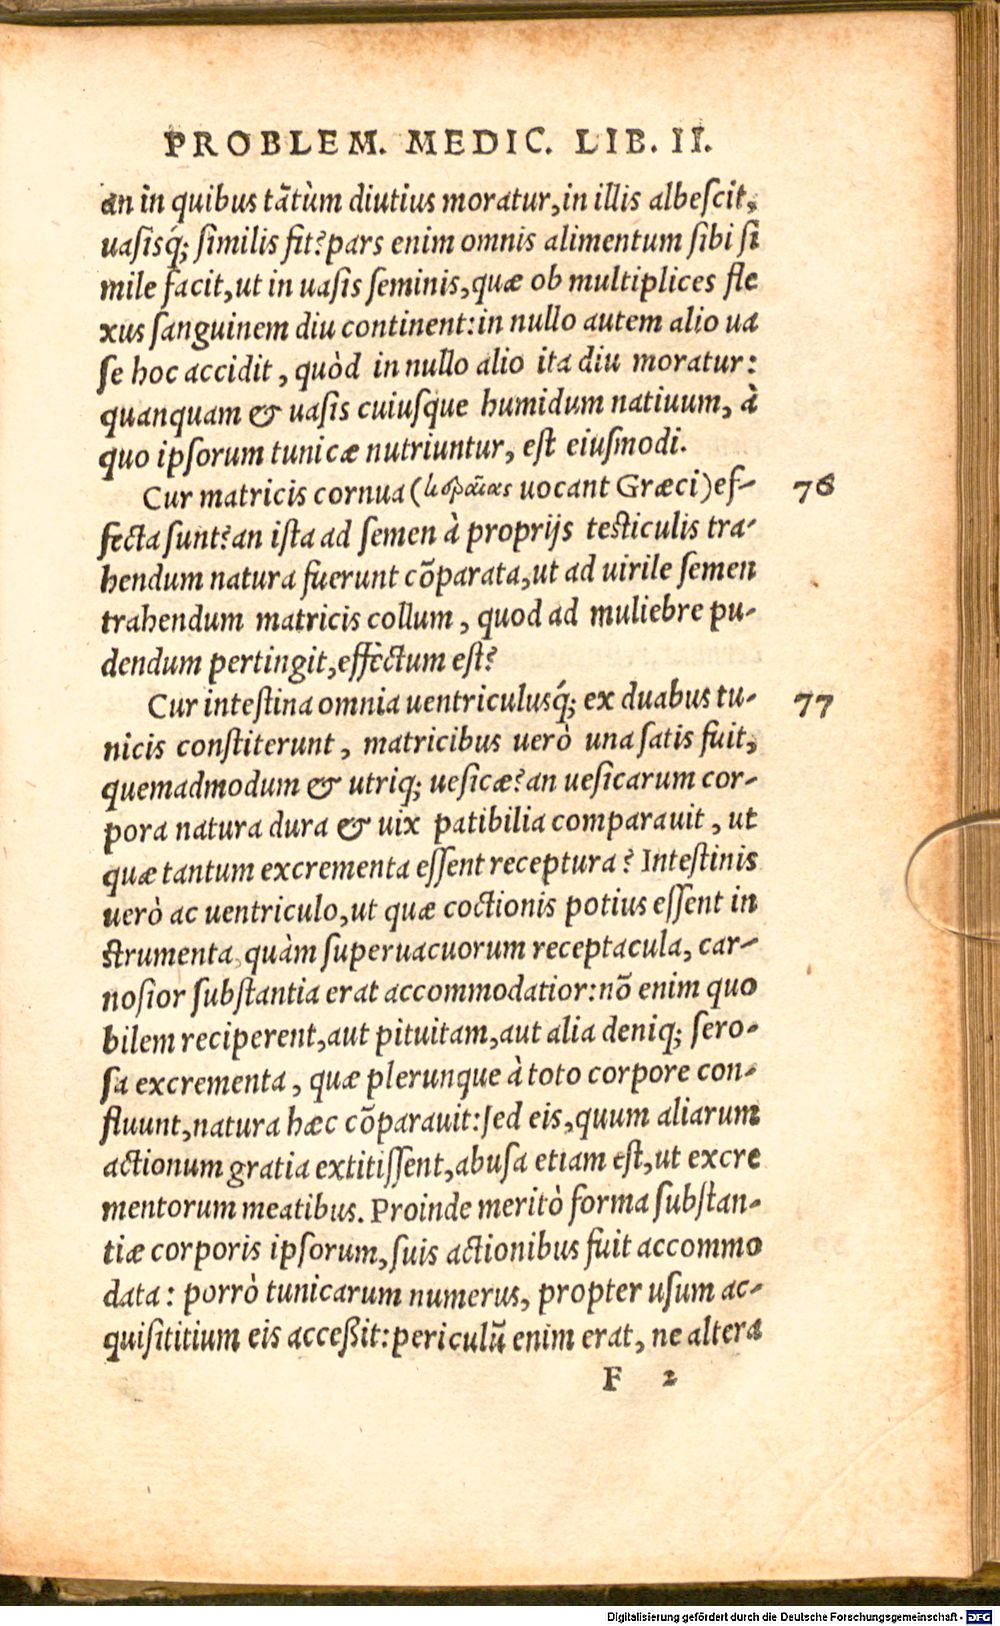 PROBLEM. MEDIC. LIB. II.
an in quibus tãtùm diutius moratur, in illis albeſcit,
uaſisq́; ſimilis fit? pars enim omnis alimentum ſibi ſi
mile facit, ut in uaſis ſeminis, quæ ob multiplices fle
xus ſanguinem diu continent: in nullo autem alio ua
ſe hoc accidit, quòd in nullo alio ita diu moratur:
quanquam & uaſis cuiuſque humidum natiuum, à
quo ipſorum tunicæ nutriuntur, eſt eiuſmodi.
Cur matricis cornua ( uocant Græci) ef- 76
fecta ſunt? an iſta ad ſemen à proprijs teſticulis tra-
hendum natura fuerunt cõparata, ut ad uirile ſemen
trahendum matricis collum, quod ad muliebre pu-
dendum pertingit, effectum eſt?
Cur inteſtina omnia uentriculusq́; ex duabus tu- 77
nicis conſtiterunt, matricibus uerò una ſatis fuit,
quemadmodum & utriq; ueſicæ? an ueſicarum cor-
pora natura dura & uix patibilia comparauit, ut
quæ tantum excrementa eſſent receptura? Inteſtinis
uerò ac uentriculo, ut quæ coctionis potius eſſent in
ſtrumenta, quàm ſuperuacuorum receptacula, car-
noſior ſubſtantia erat accommodatior: nõ enim quo
bilem reciperent, aut pituitam, aut alia deniq; ſero-
ſa excrementa, quæ plerunque à toto corpore con-
fluunt, natura hæc cõparauit: ſed eis, quum aliarum
actionum gratia extitiſſent, abuſa etiam eſt, ut excre
mentorum meatibus. Proinde meritò forma ſubſtan-
tiæ corporis ipſorum, ſuis actionibus fuit accommo
data: porrò tunicarum numerus, propter uſum ac-
quiſititium eis acceßit: periculũ enim erat, ne altera
F 2
Digitalisierung gefördert durch die Deutsche Forschungsgemeinschaft - DFG